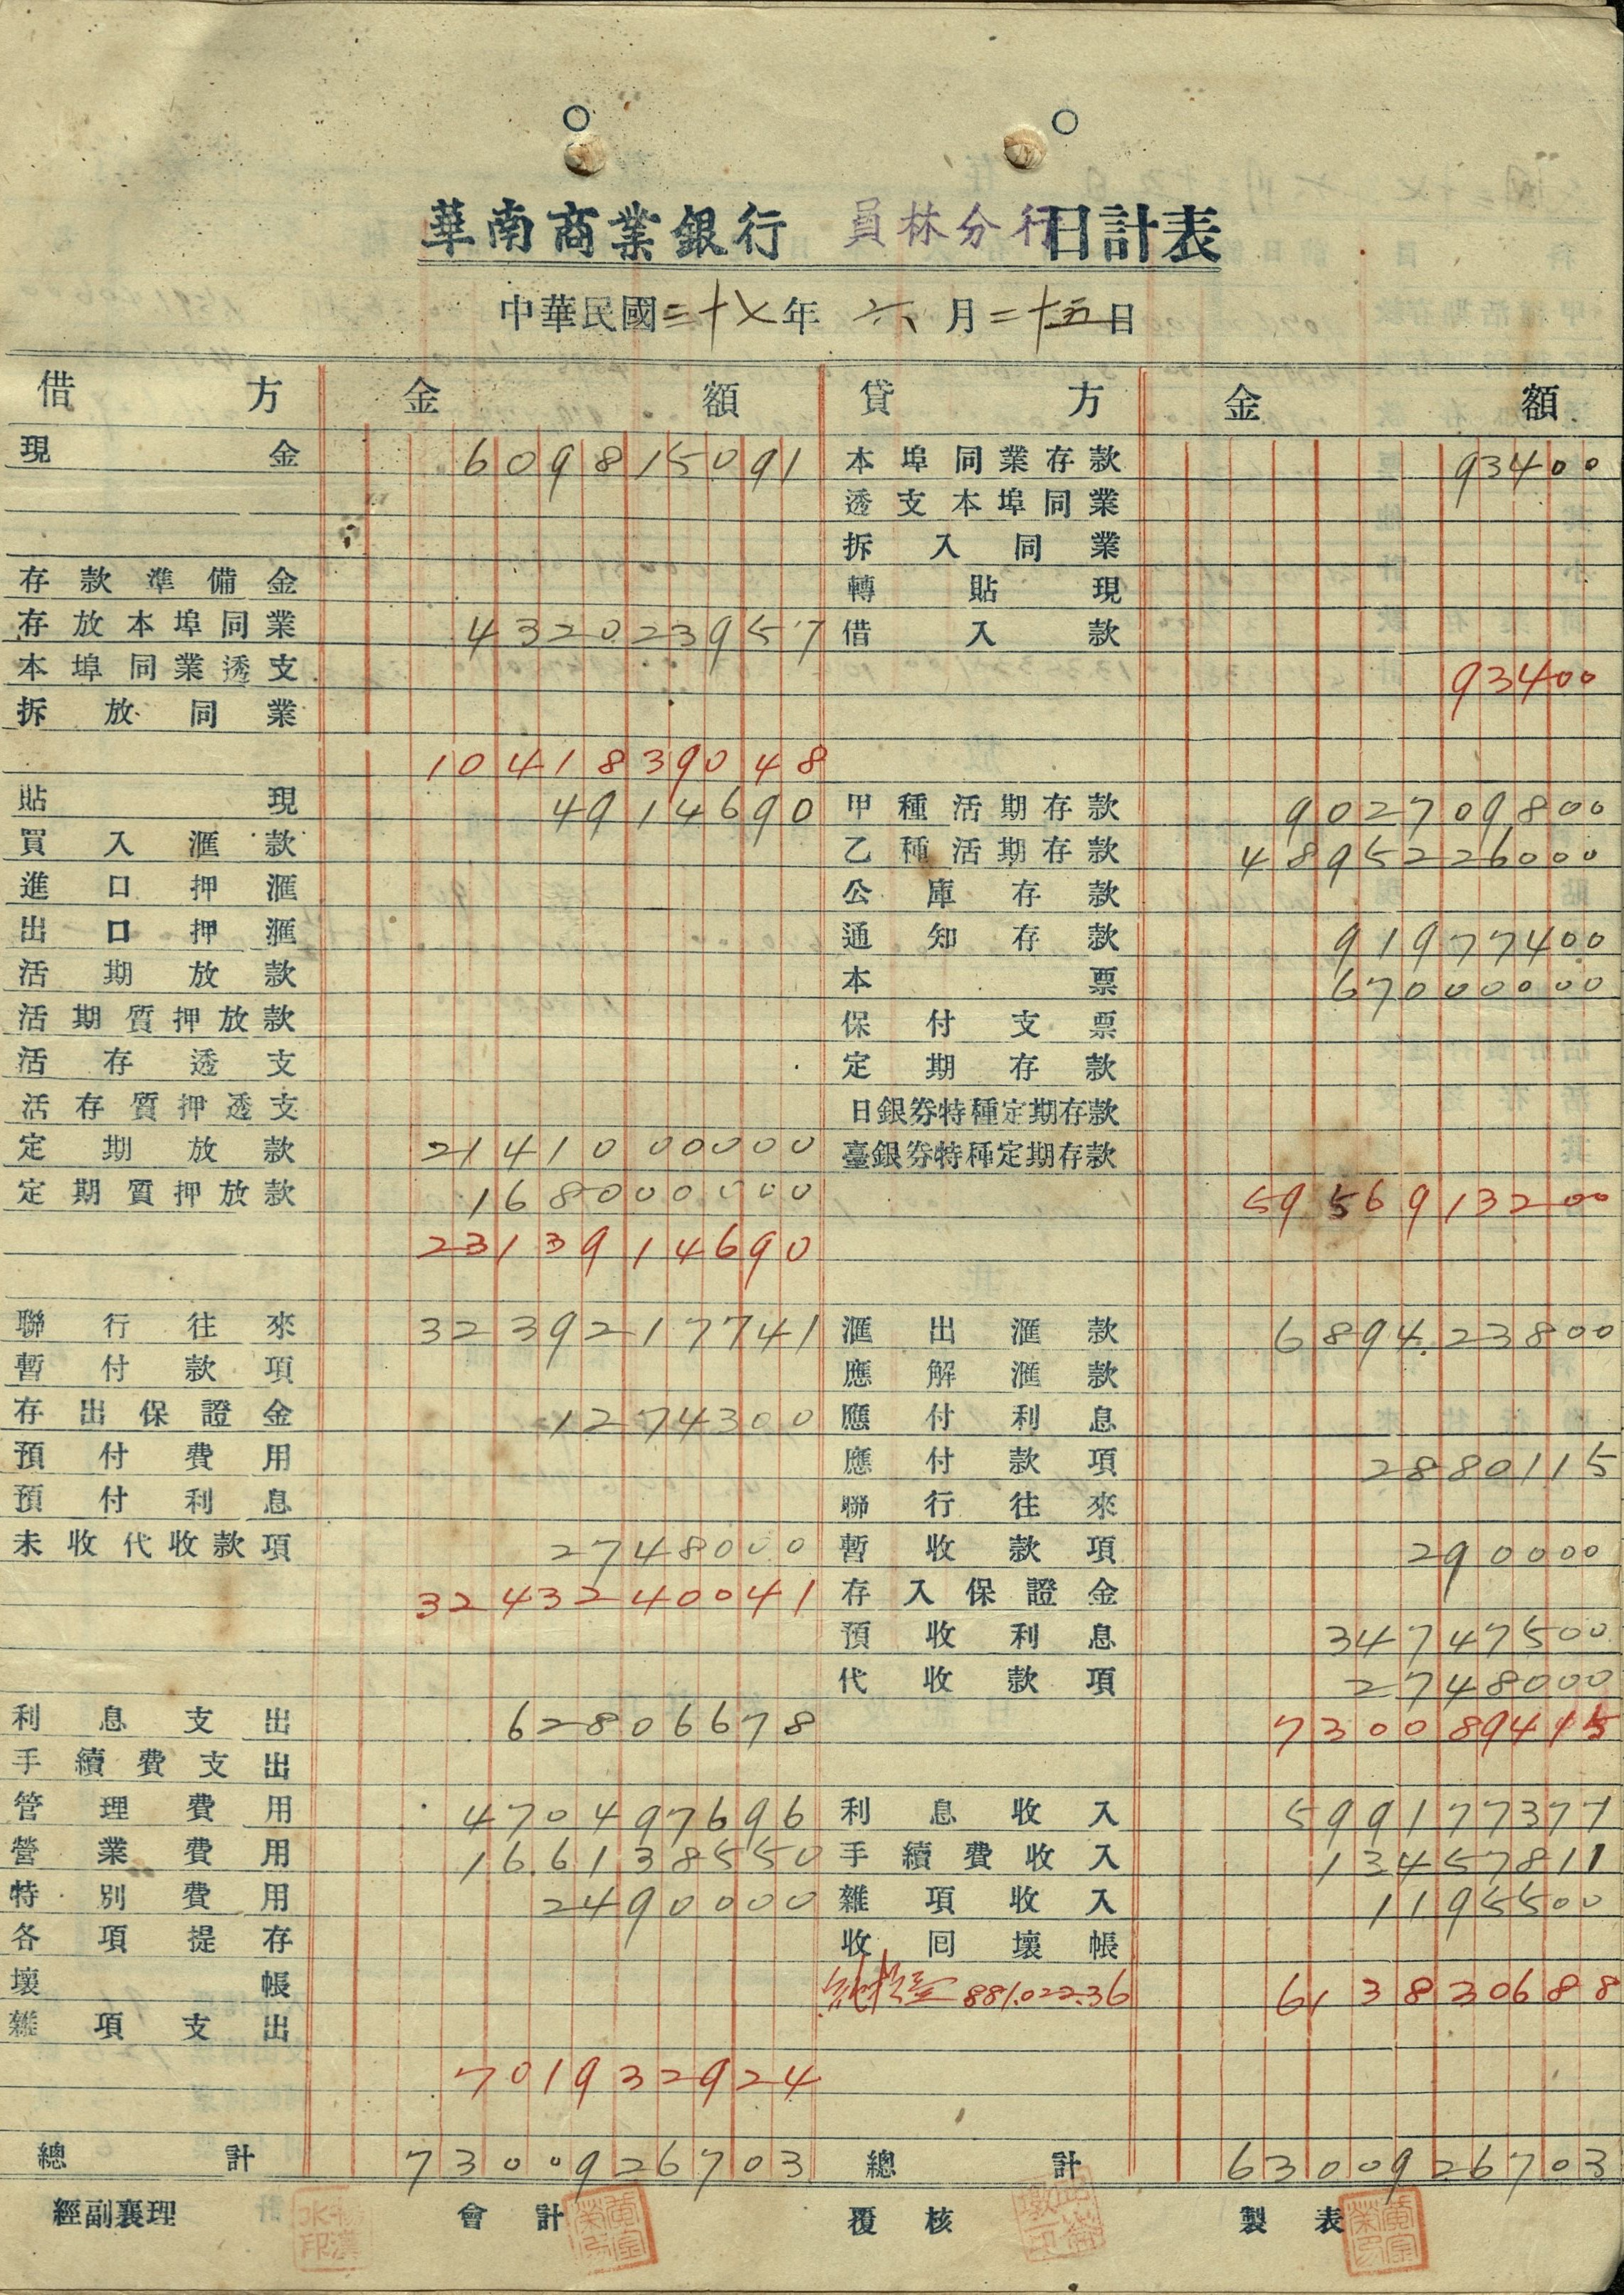 華南商業銀行 員林分行 日計表
中華民國三十七年 六月二十五日
借方 金額 貸方 金額
現金 609815091 本埠同業存款 93400
透支本埠同業
拆入同業
存款準備金 轉貼現
存放本埠同業 4320239957 借入款
本埠同業透支 93400
拆放同業
10418390 48
貼現 4914690 甲種活期存款 902709800
買入滙款 乙種活期存款 4895226000
進口押滙 公庫存款
出口押滙 通知存款 91977400
活期放款 本票 67000000
活期質押放款 保付支票
活存透支 定期存款
活存質押透支 日銀券特種定期存款
定期放款 21410 00000 臺銀券特種定期存款
定期質押放款 168000000 5956913200
2313914690
聯行往來 3239217741 滙出滙款 689423800
暫付款項 應解滙款
存出保證金 1274300 應付利息
預付費用 應付款項 2880115
預付利息 聯行往來
未收代收款項 2748000 暫收款項 290000
3243240041 存入保證金
預收利息 34747500
代收款項 2748000
利息支出 62806678 730089415
手續費支出
管理費用 470497696 利息收入 599177377
營業費用 166138550 手續費收入 13457811
特別費用 2490000 雜項收入 1195500
各項提存 收回壞帳
壞帳 881.022.36 613830688
雜項支出
701932924
總計 7300926703 總計 6300926703
經副襄理 會計 覆核 製表